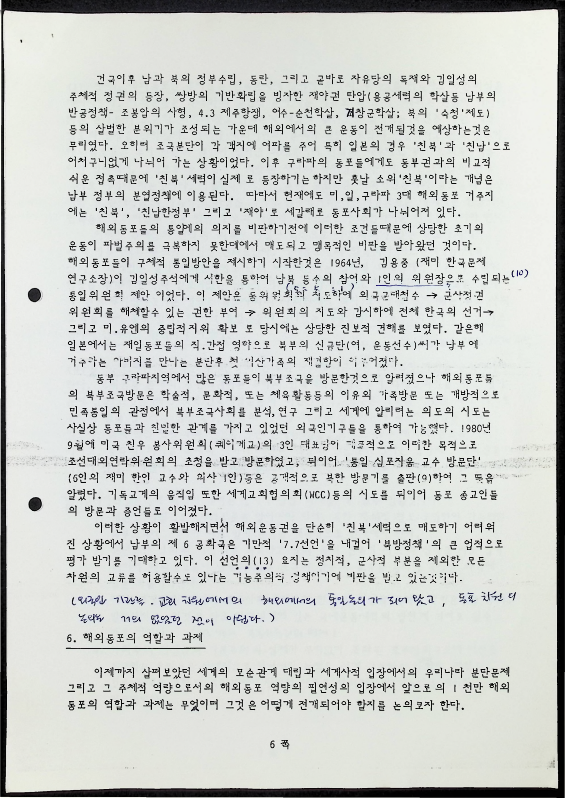 건국이후 남과 북의 정부수립, 동란, 그리고 곧바로 자유당의 독재와 김일성의
주체적 정권의 등장, 쌍방의 기반확립을 빙자한 재야권 탄압(용공세력의 학살등 남부의
반공정책- 조봉암의 사형, 4.3 제주항쟁, 여수-순천학살, 거창군학살; 북의 '숙청'제도)
등의 살벌한 분위기가 조성되는 가운데 해외에서의 큰 운동이 전개될것을 예상하는것은
무리였다. 오히려 조국분단이 각 객지에 여파를 주어 특히 일본의 경우 '친북'과 '친남'으로
어처구니없게 나뉘어 가는 상황이었다. 이후 구라파의 동포들에게도 동부권과의 비교적
쉬운 접촉때문에 '친북'세력이 실제로 등장하기는하지만 훗날 소위'친북'이라는 개념은
남부 정부의 분열정책에 이용된다. 따라서 현재에도 미,일,구라파 3대 해외동포 거주지
에는 '친북', '친남한정부' 그리고 '재야'로 세갈래로 동포사회가 나뉘어져 있다.
해외동포들의 통일에의 의지를 비판하기전에 이러한 조건들때문에 상당한 초기의
운동이 파벌주의를 극복하지 못한데에서 매도되고 맹목적인 비판을 받아왔던 것이다.
해외동포들이 구체적 통일방안을 제시하기 시작한것은 1964년, 김용중 (재미 한국문제
연구소장)이 김일성주석에게 서한을 통하여 남북 동수의 참여와 1인의 위원장으로 수립되는 (10)
통일위원회 제안 이었다. 이 제안은 통일위원회의 지도하에 외국군대철수 → 군사정권
위원회를 해체할수 있는 권한 부여 → 위원회의 지도와 감시하에 전체 한국의 선거→
그리고 미.유엔의 중립적지위 확보 로 당시에는 상당한 진보적 견해를 보였다. 같은해
일본에서는 재일동포들의 직.간접 영향으로 북부의 신금단(여, 운동선수)씨가 남부에
거주하는 아버지를 만나는 분단후 첫 이산가족의 재결합이 이루어졌다.
동부 구라파지역에서 많은 동포들이 북부조국을 방문한것으로 알려졌으나 해외동포들
의 북부조국방문은 학술적, 문화적, 또는 체육활동등의 이유외 가족방문 또는 개방적으로
민족통일의 관점에서 북부조국사회를 분석,연구 그리고 세계에 알리려는 의도의 시도는
사실상 동포들과 친밀한 관계를 가지고 있었던 외국인기구들을 통하여 가능했다. 1980년
9월에 미국 친우 봉사위원회(퀘이커교)의 3인 대표팀이 공적으로 이러한 목적으로
조선대외연락위원회의 초청을 받고 방문하였고, 뒤이어 '통일 심포지움 교수 방문단'
(6인의 재미 한인 교수와 의사 1인)등은 공개적으로 북한 방문기를 출판(9)하여 그 뜻을
알렸다. 기독교계의 움직임 또한 세계교회협의회(WCC)등의 시도를 뒤이어 동포 종교인들
의 방문과 증언들로 이어졌다.
이러한 상황이 활발해지면서 해외운동권을 단순히 '친북'세력으로 매도하기 어려워
진 상황에서 남부의 제 6 공화국은 기만적 '7.7선언'을 내걸어 '북방정책'의 큰 업적으로
평가 받기를 기대하고 있다. 이 선언의(13) 요지는 정치적, 군사적 부분을 제외한 모든
차원의 교류를 허용할수도 있다는 기능주의의 정책이기에 비판을 받고 있는것이다.
해외에서의 통일논의가 되어 왔고, 동포 차원의
논의는 거의 없었던 것이 아닌가.)
6. 해외동포의 역할과 과제
이제까지 살펴보았던 세계의 모순관계 대립과 세계사적 입장에서의 우리나라 분단문제
그리고 그 주체적 역량으로서의 해외동포 역량의 필연성의 입장에서 앞으로의 1 천만 해외
동포의 역할과 과제는 무엇이며 그것은 어떻게 전개되어야 할지를 논의코자 한다.
6 쪽